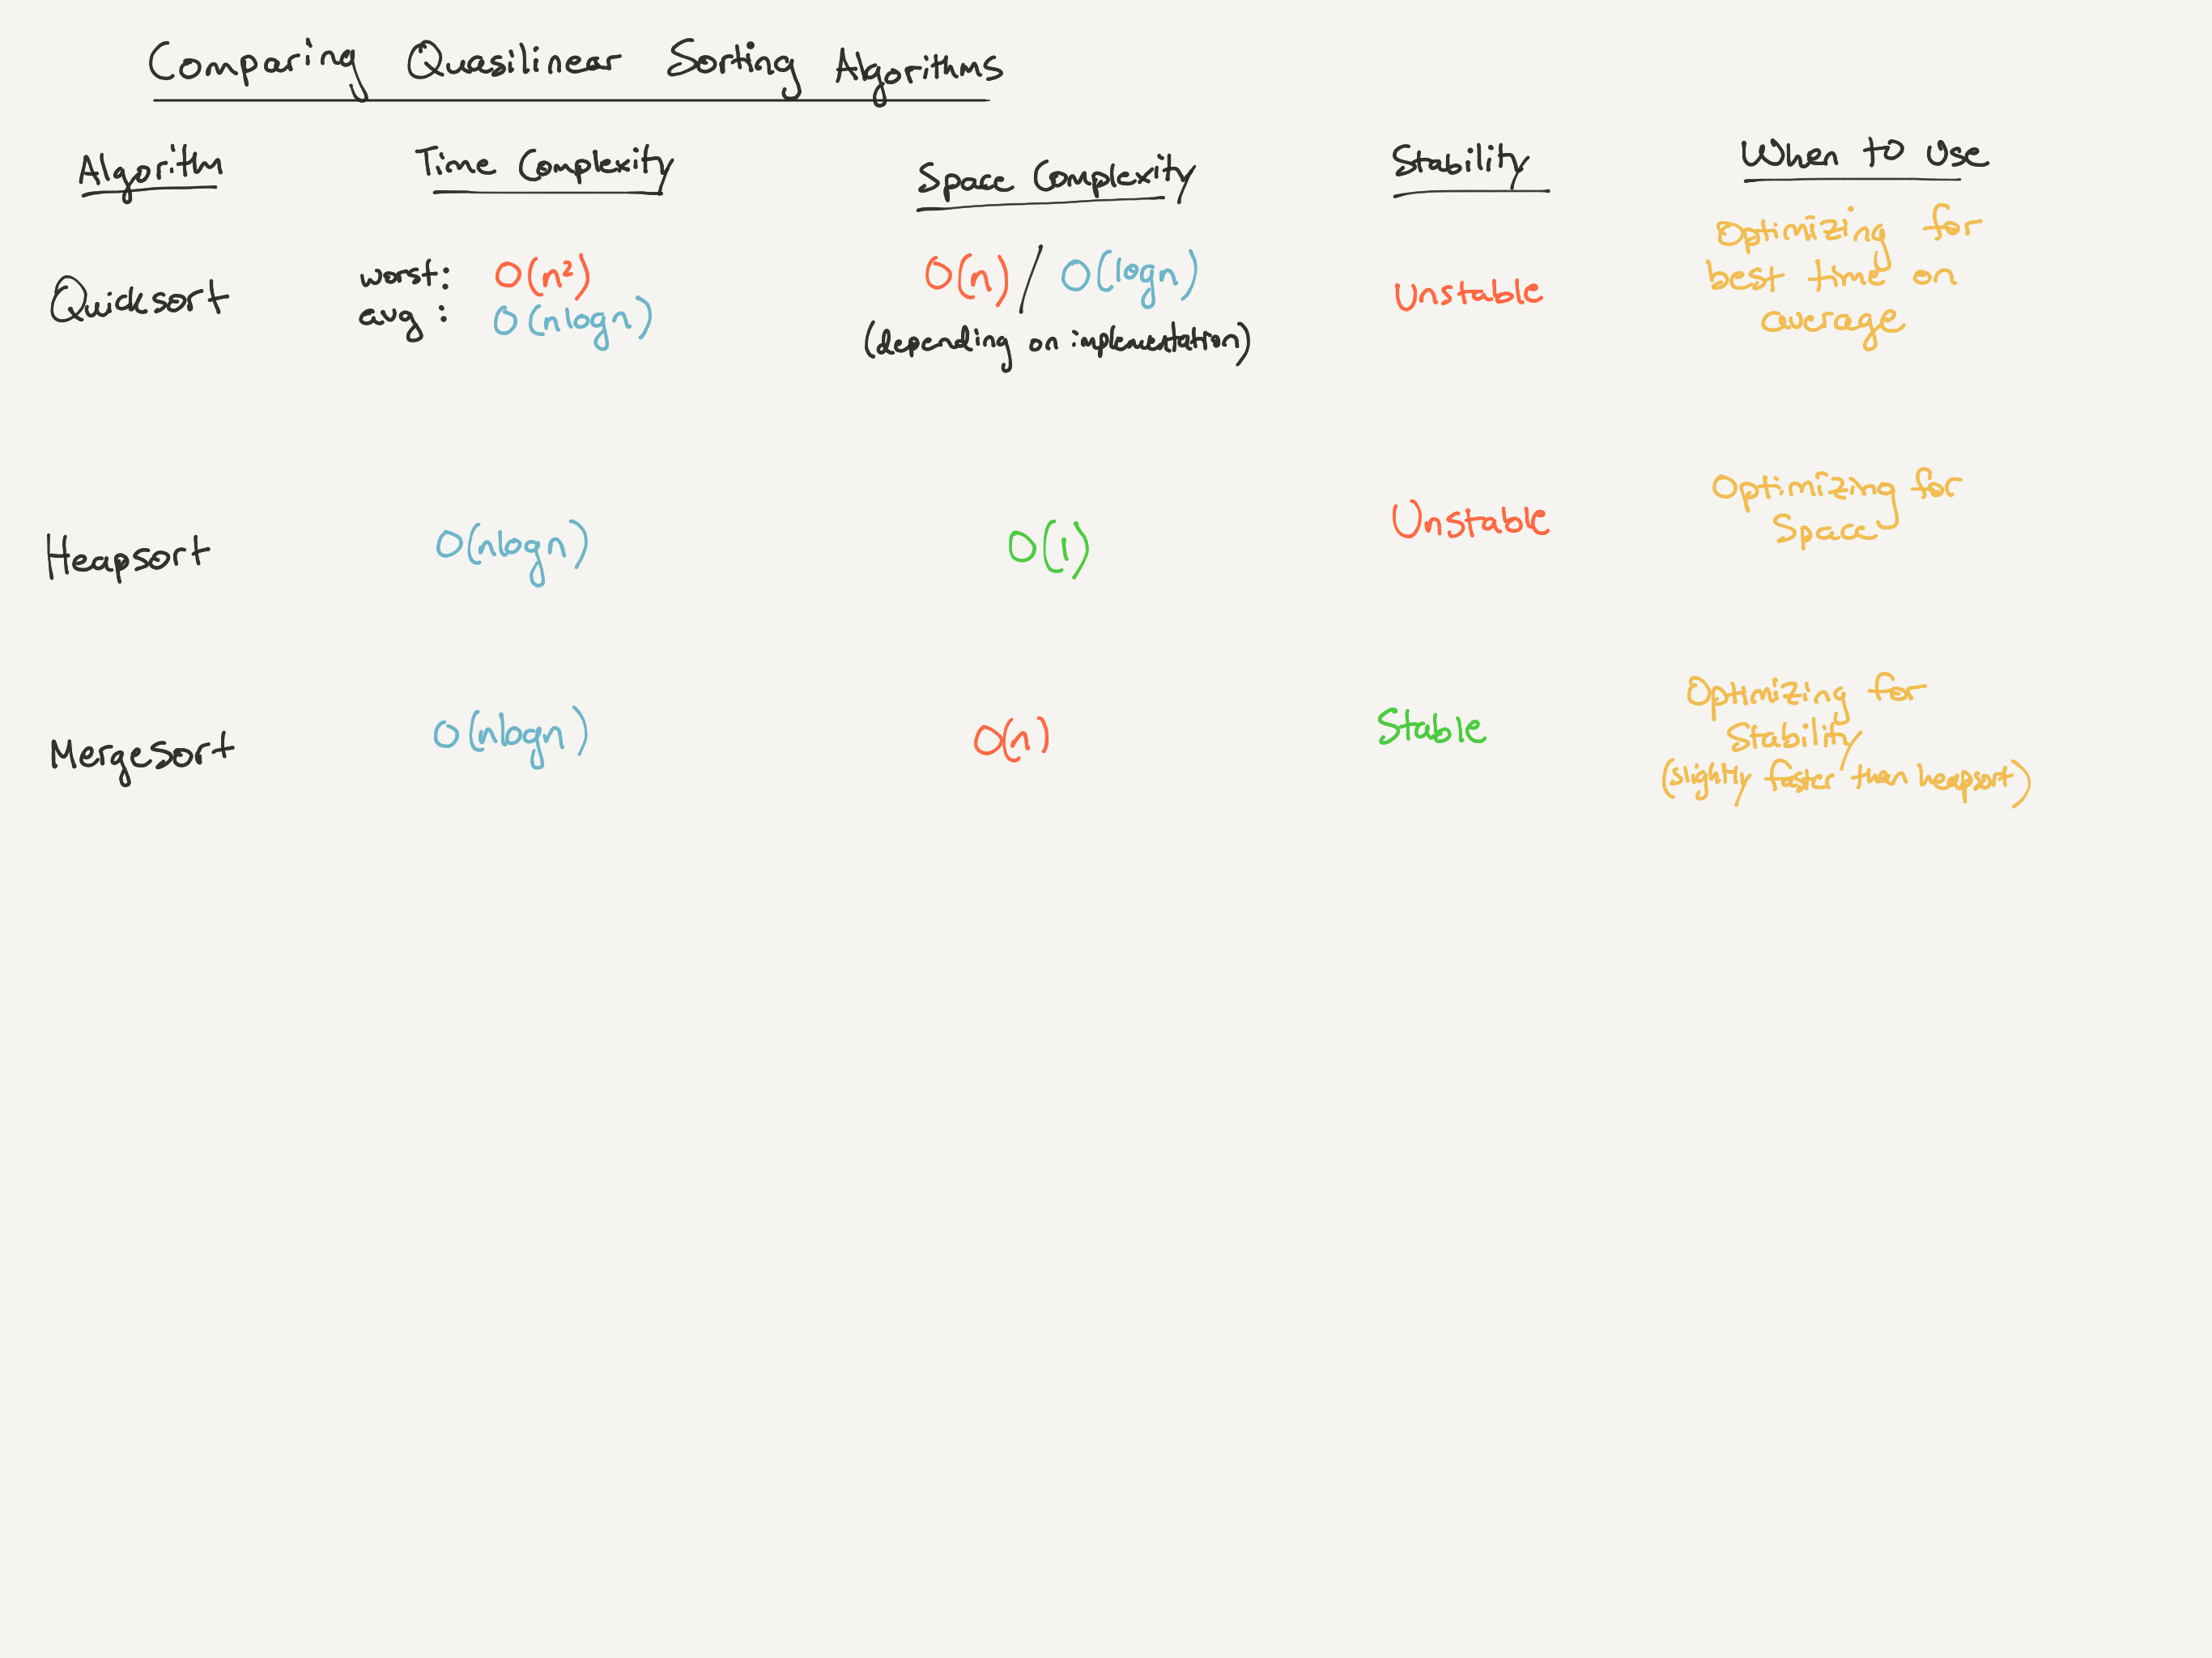 Comparing Quasilinear Sorting Algorithms
Algorithm Time Complexity Space Complexity Stability When to Use
Quicksort worst: O(n²) O(n) / O(logn) Unstable Optimizing for
avg: O(nlogn) (depending on implementation) best time on
average
Heapsort O(nlogn) O(1) Unstable Optimizing for
Space
Mergesort O(nlogn) O(n) Stable Optimizing for
Stability
(slightly faster than heapsort)